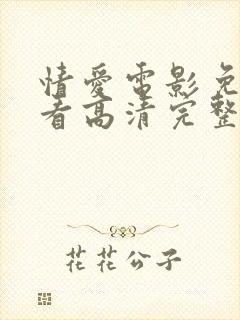 情愛電影免
看高清完整
花花公子